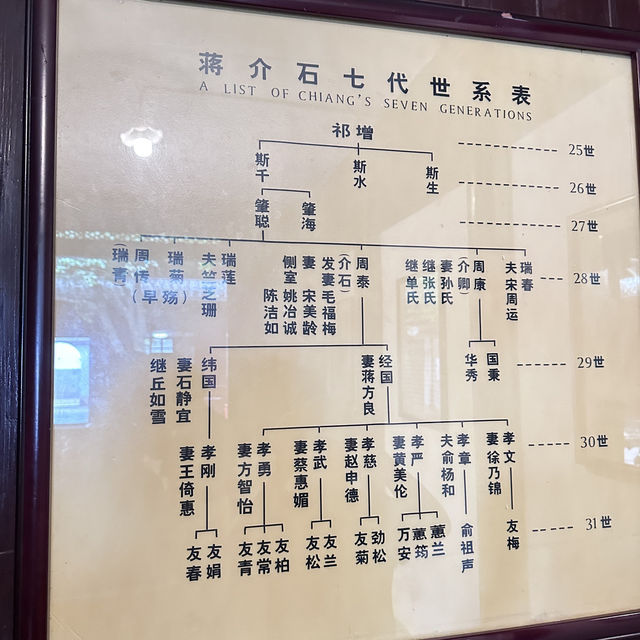 蒋介石七代世系表
A LIST OF CHIANG'S SEVEN GENERATIONS
祁增
25世
斯千
斯水
斯生
26世
肇聪
肇海
27世
瑞春
夫宋周运
周康
(介卿)
妻孙氏
继张氏
继单氏
周泰
(介石)
发妻毛福梅
妻宋美龄
侧室姚冶诚
陈洁如
瑞莲
夫竺芝珊
瑞菊
周传
(早殇)
(瑞青)
28世
国秉
华秀
经国
妻蒋方良
纬国
妻石静宜
继丘如雪
29世
孝文
妻徐乃锦
孝章
夫俞杨和
孝严
妻黄美伦
孝慈
妻赵申德
孝武
妻蔡惠媚
孝勇
妻方智怡
孝刚
妻王倚惠
30世
友梅
俞祖声
蕙兰
蕙筠
万安
劲松
友菊
友兰
友松
友柏
友常
友青
友娟
友春
31世